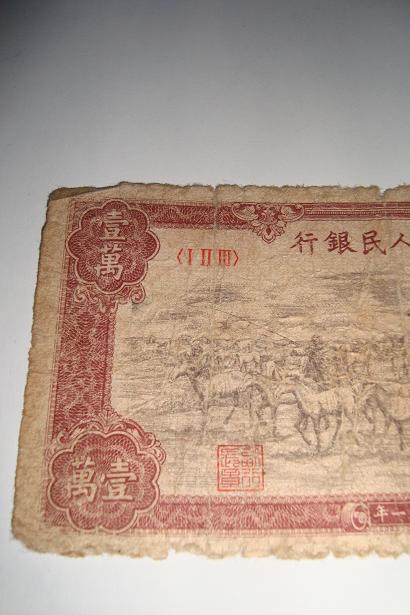 壹萬
〈I II III〉
行銀民人
萬壹
年一